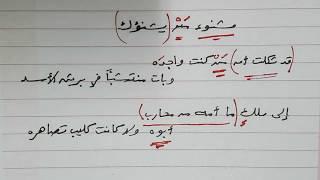 مشنوء مَنْ (يشنؤك)
(قد ثكلت أمه) مَنْ كنت واجدَه
وبات منتشبًا في برثن الأسد
إلى ملكٍ (ما أمه من محارب)
أبوه ولا كانت كليب تصاهره